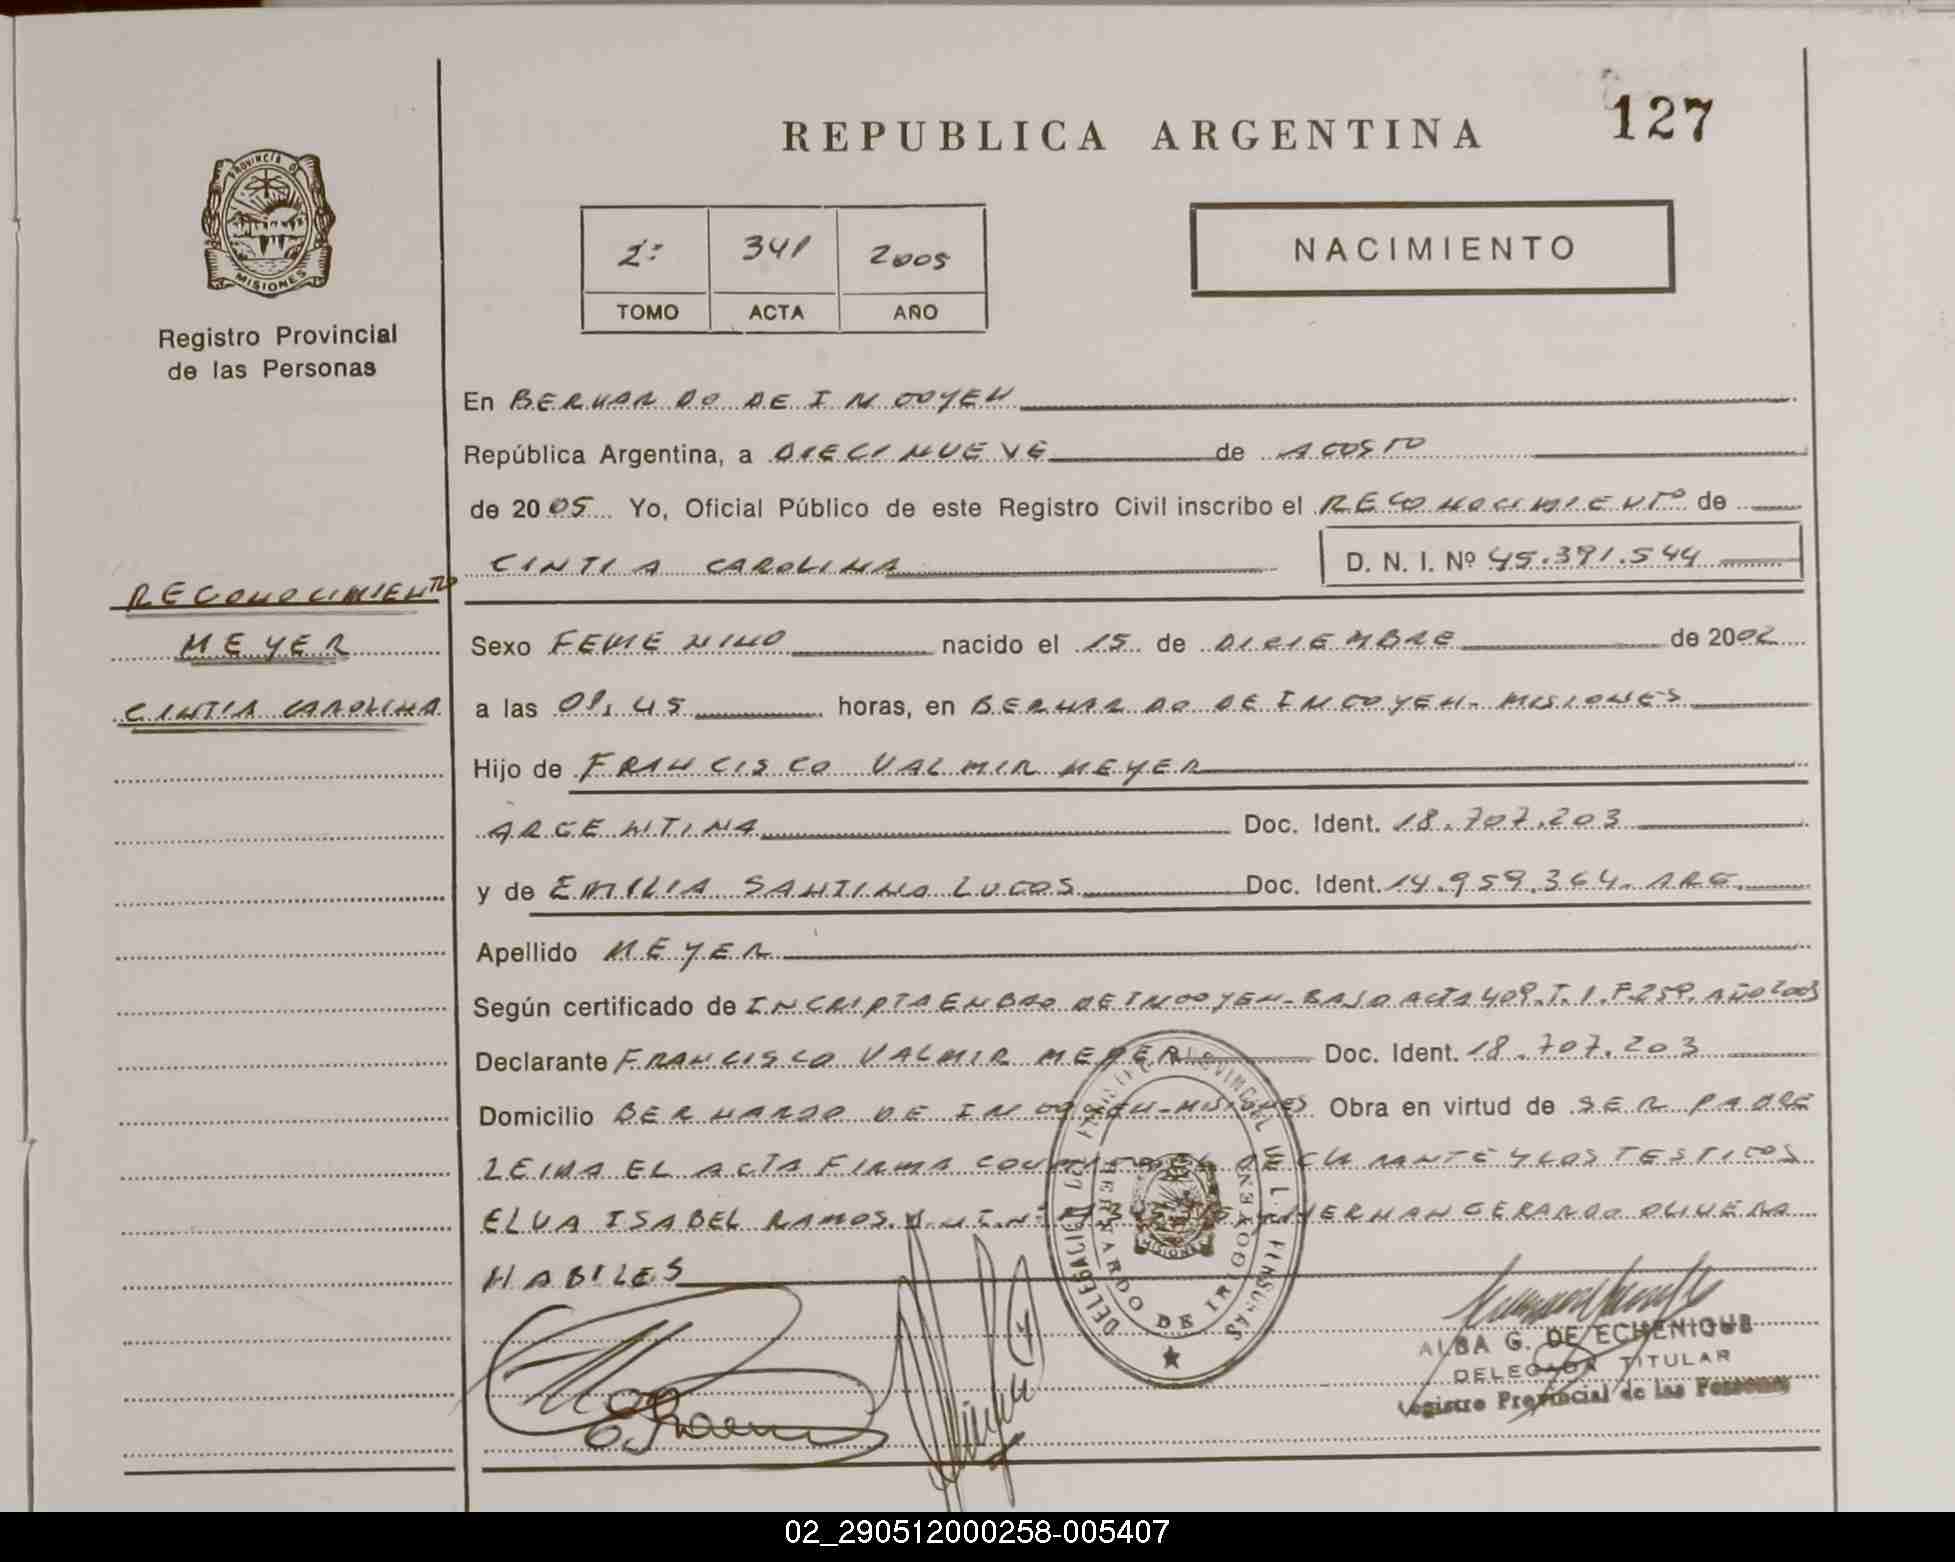 127
REPUBLICA ARGENTINA
PROVINCIA DE
MISIONES
Registro Provincial
de las Personas
2º 341 2005
TOMO ACTA AÑO
NACIMIENTO
En BERNARDO DE IRIGOYEN
República Argentina, a DIECINUEVE de AGOSTO
de 2005 Yo, Oficial Público de este Registro Civil inscribo el RECONOCIMIENTO de
CINTIA CAROLINA D. N. I. Nº 45.391.544
RECONOCIMIENTO
MEYER
CINTIA CAROLINA
Sexo FEMENINO nacido el 15 de DICIEMBRE de 2002
a las 01,45 horas, en BERNARDO DE IRIGOYEN- MISIONES
Hijo de FRANCISCO VALMIR MEYER
ARGENTINA Doc. Ident. 18.707.203
y de EMILIA SANTINA LUCOS Doc. Ident. 14.959.364. ARG.
Apellido MEYER
Según certificado de INCRIPTA EN BDO DE IRIGOYEN- BAJO ACTA 409. T. 1. F. 259. AÑO 2003
Declarante FRANCISCO VALMIR MEYER Doc. Ident. 18.707.203
Domicilio BERNARDO DE IRIGOYEN-MISIONES Obra en virtud de SER PADRE
LEIDA EL ACTA FIRMA CONMIGO EL DECLARANTE Y LOS TESTIGOS
ELVA ISABEL RAMOS D.N.I.Nº HERNAN GERARDO OLIVERA
HABILES
DELEGACION REGISTRO PROVINCIAL DE LAS PERSONAS
BERNARDO DE IRIGOYEN
ALBA G. DE ECHENIQUE
DELEGADA TITULAR
Registro Provincial de las Personas
02_290512000258-005407